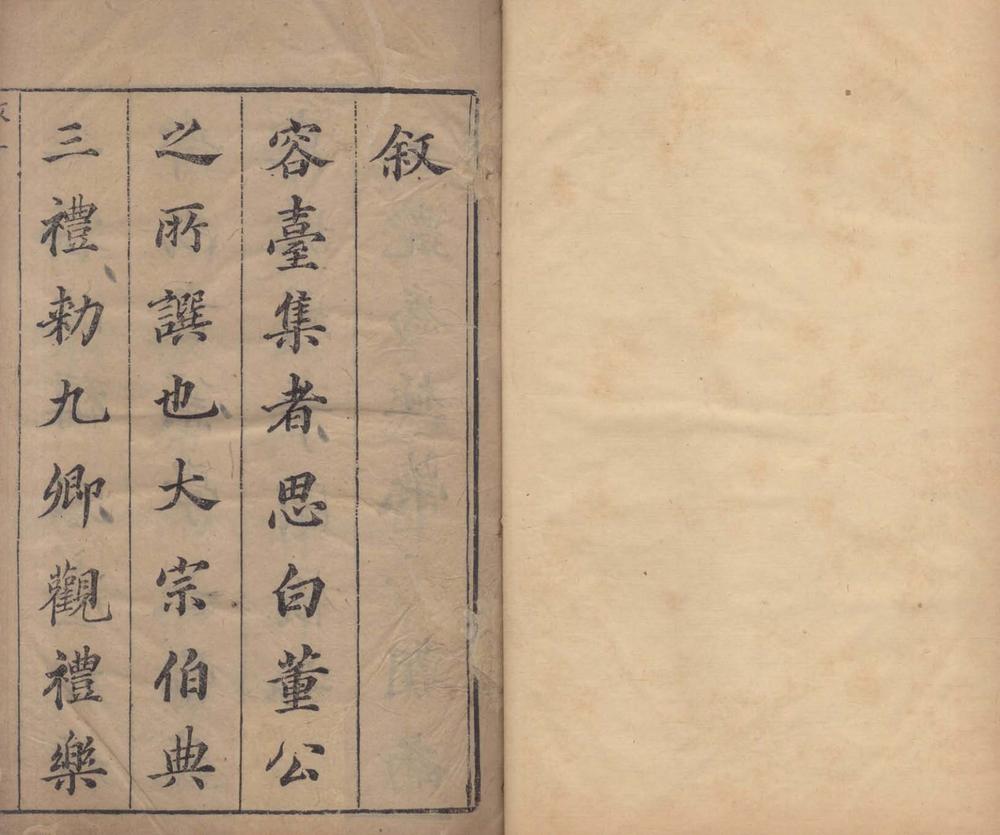 叙
容臺集者思白董公
之所譔也大宗伯典
三禮勅九卿觀禮樂